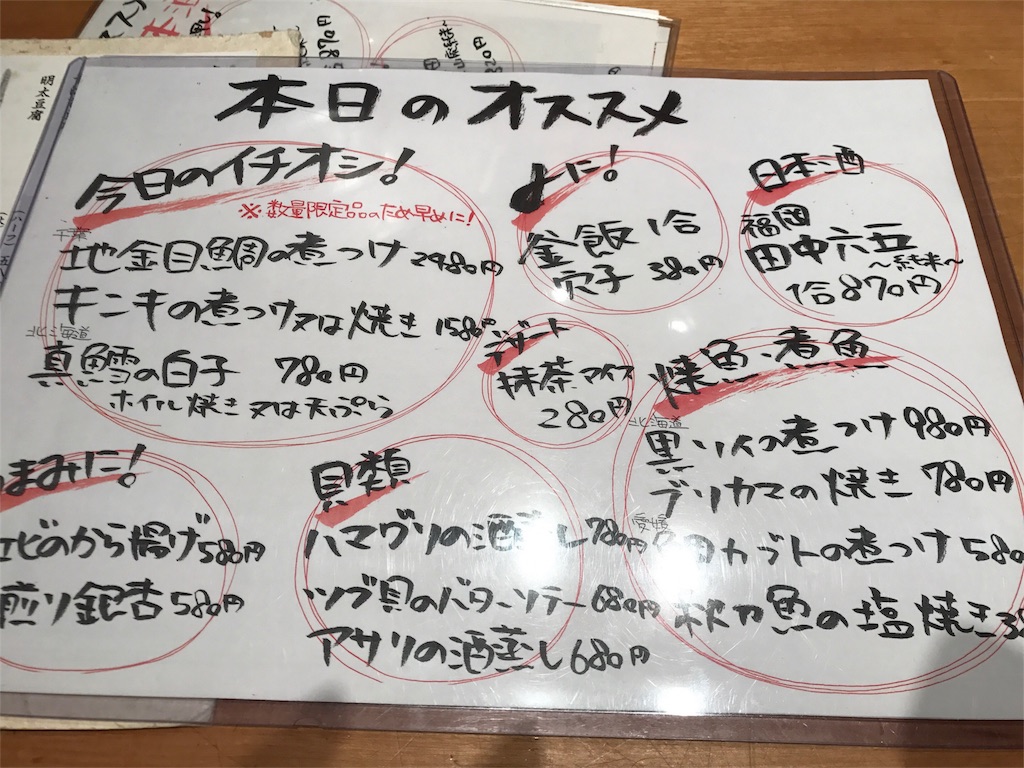 本日のオススメ
今日のイチオシ!
※数量限定品のため早めに!
千葉
地金目鯛の煮つけ 2480円
キンキの煮つけ又は焼き 1580円
北海道
真鱈の白子 780円
ホイル焼き又は天ぷら
〆に!
釜飯 1合
穴子 580円
日本酒
福岡
田中六五
〜純米〜
1合870円
デザート
抹茶アイス
280円
焼魚・煮魚
北海道
黒ソイの煮つけ 980円
ブリカマの焼き 780円
愛媛
カブトの煮つけ 580
秋刀魚の塩焼き
まみに!
エビのから揚げ 580円
煎り銀杏 580円
貝類
ハマグリの酒蒸し 780円
ツブ貝のバターソテー 680円
アサリの酒蒸し 680円
明太豆腐